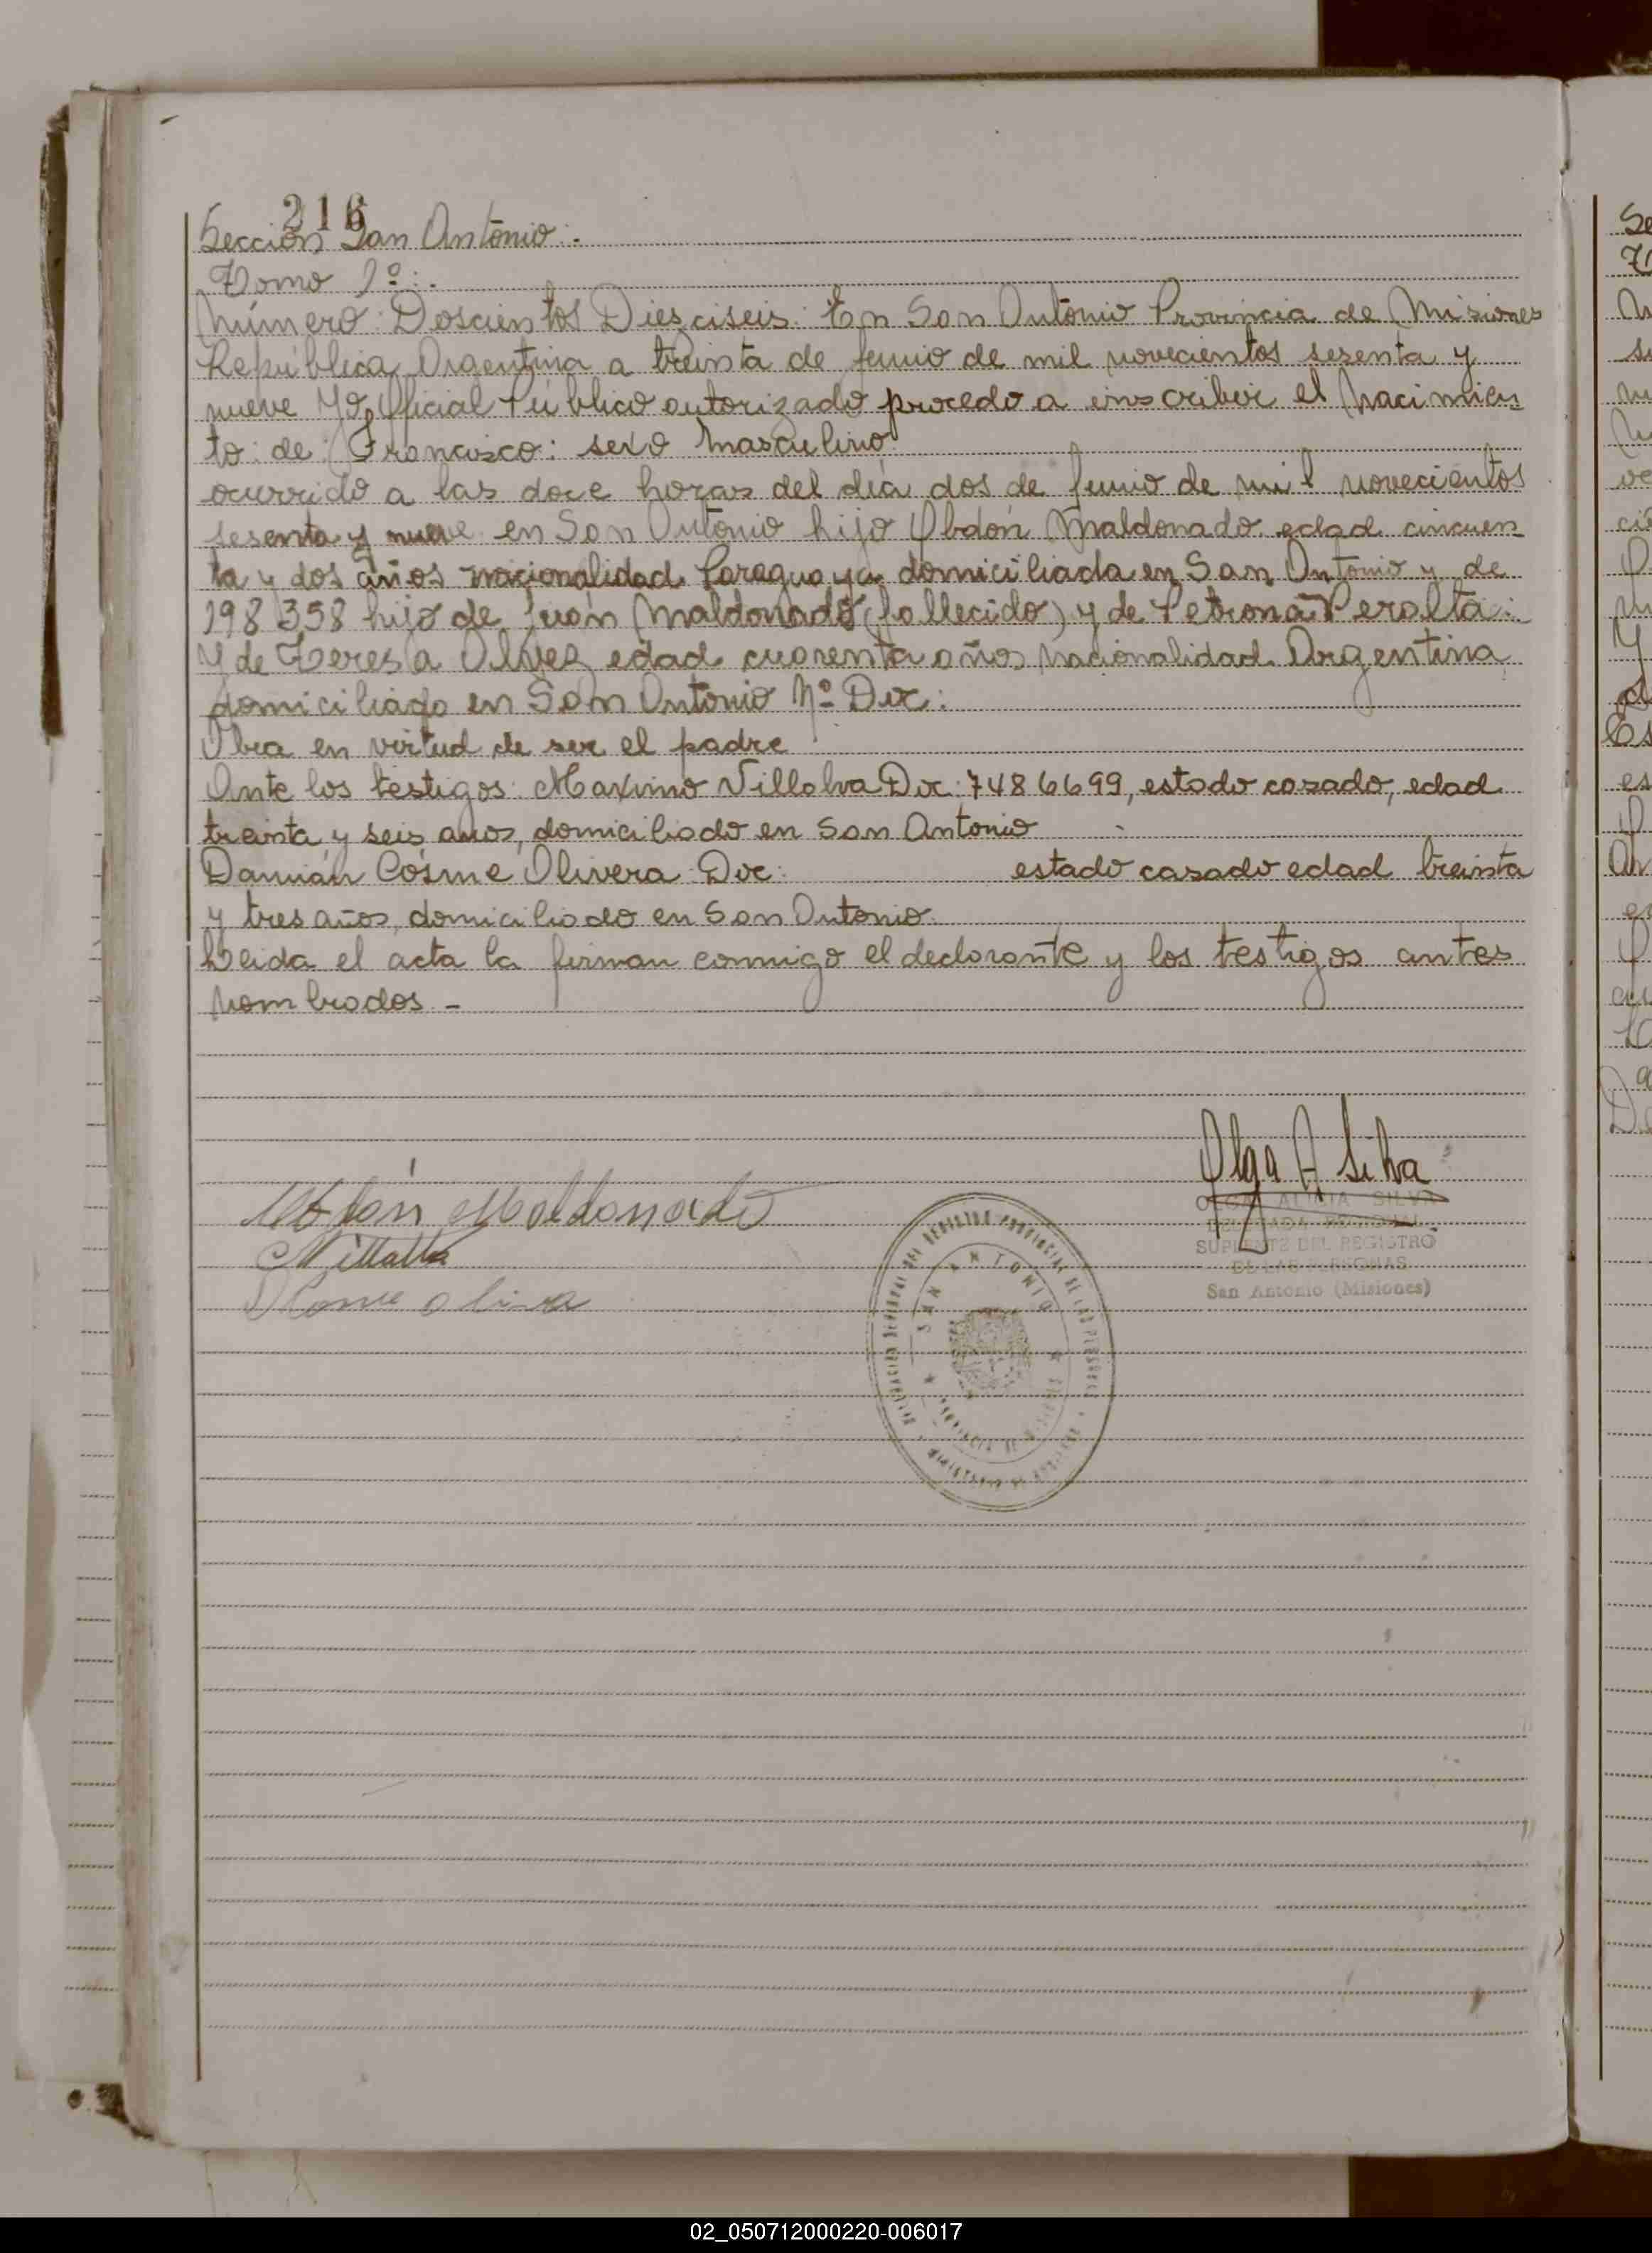 216
Sección San Antonio:.
Tomo 1º:.
Número: Doscientos Diesciseis: En San Antonio Provincia de Misiones
República Argentina a treinta de junio de mil novecientos sesenta y
nueve Yo, Oficial Público autorizado procedo a inscribir el Nacimien
to: de: Francisco: sexo Masculino
ocurrido a las doce horas del día dos de junio de mil novecientos
sesenta y nueve en San Antonio hijo Obdón Maldonado edad cincuen
ta y dos años nacionalidad Paraguaya domiciliada en San Antonio y de
198358 hijo de Juan Maldonado (fallecido) y de Petrona Peralta:.
Y de Teresa Olivez edad cuarenta años Nacionalidad Argentina
domiciliado en San Antonio Nº Doc:
Obra en virtud de ser el padre
Ante los testigos: Maximo Villalva Doc: 7486699, estado casado, edad
treinta y seis años, domiciliado en San Antonio
Damián Cósme Olivera Doc: estado casado edad treinta
y tres años, domiciliado en San Antonio.
Leida el acta la firman conmigo el declarante y los testigos antes
nombrados -
Olga A Silva
Maldonado
OLGA ALICIA SILVA
DELEGADA REGIONAL
SUPLENTE DEL REGISTRO
DE LAS PERSONAS
San Antonio (Misiones)
Villalba
SAN ANTONIO
02_050712000220-006017